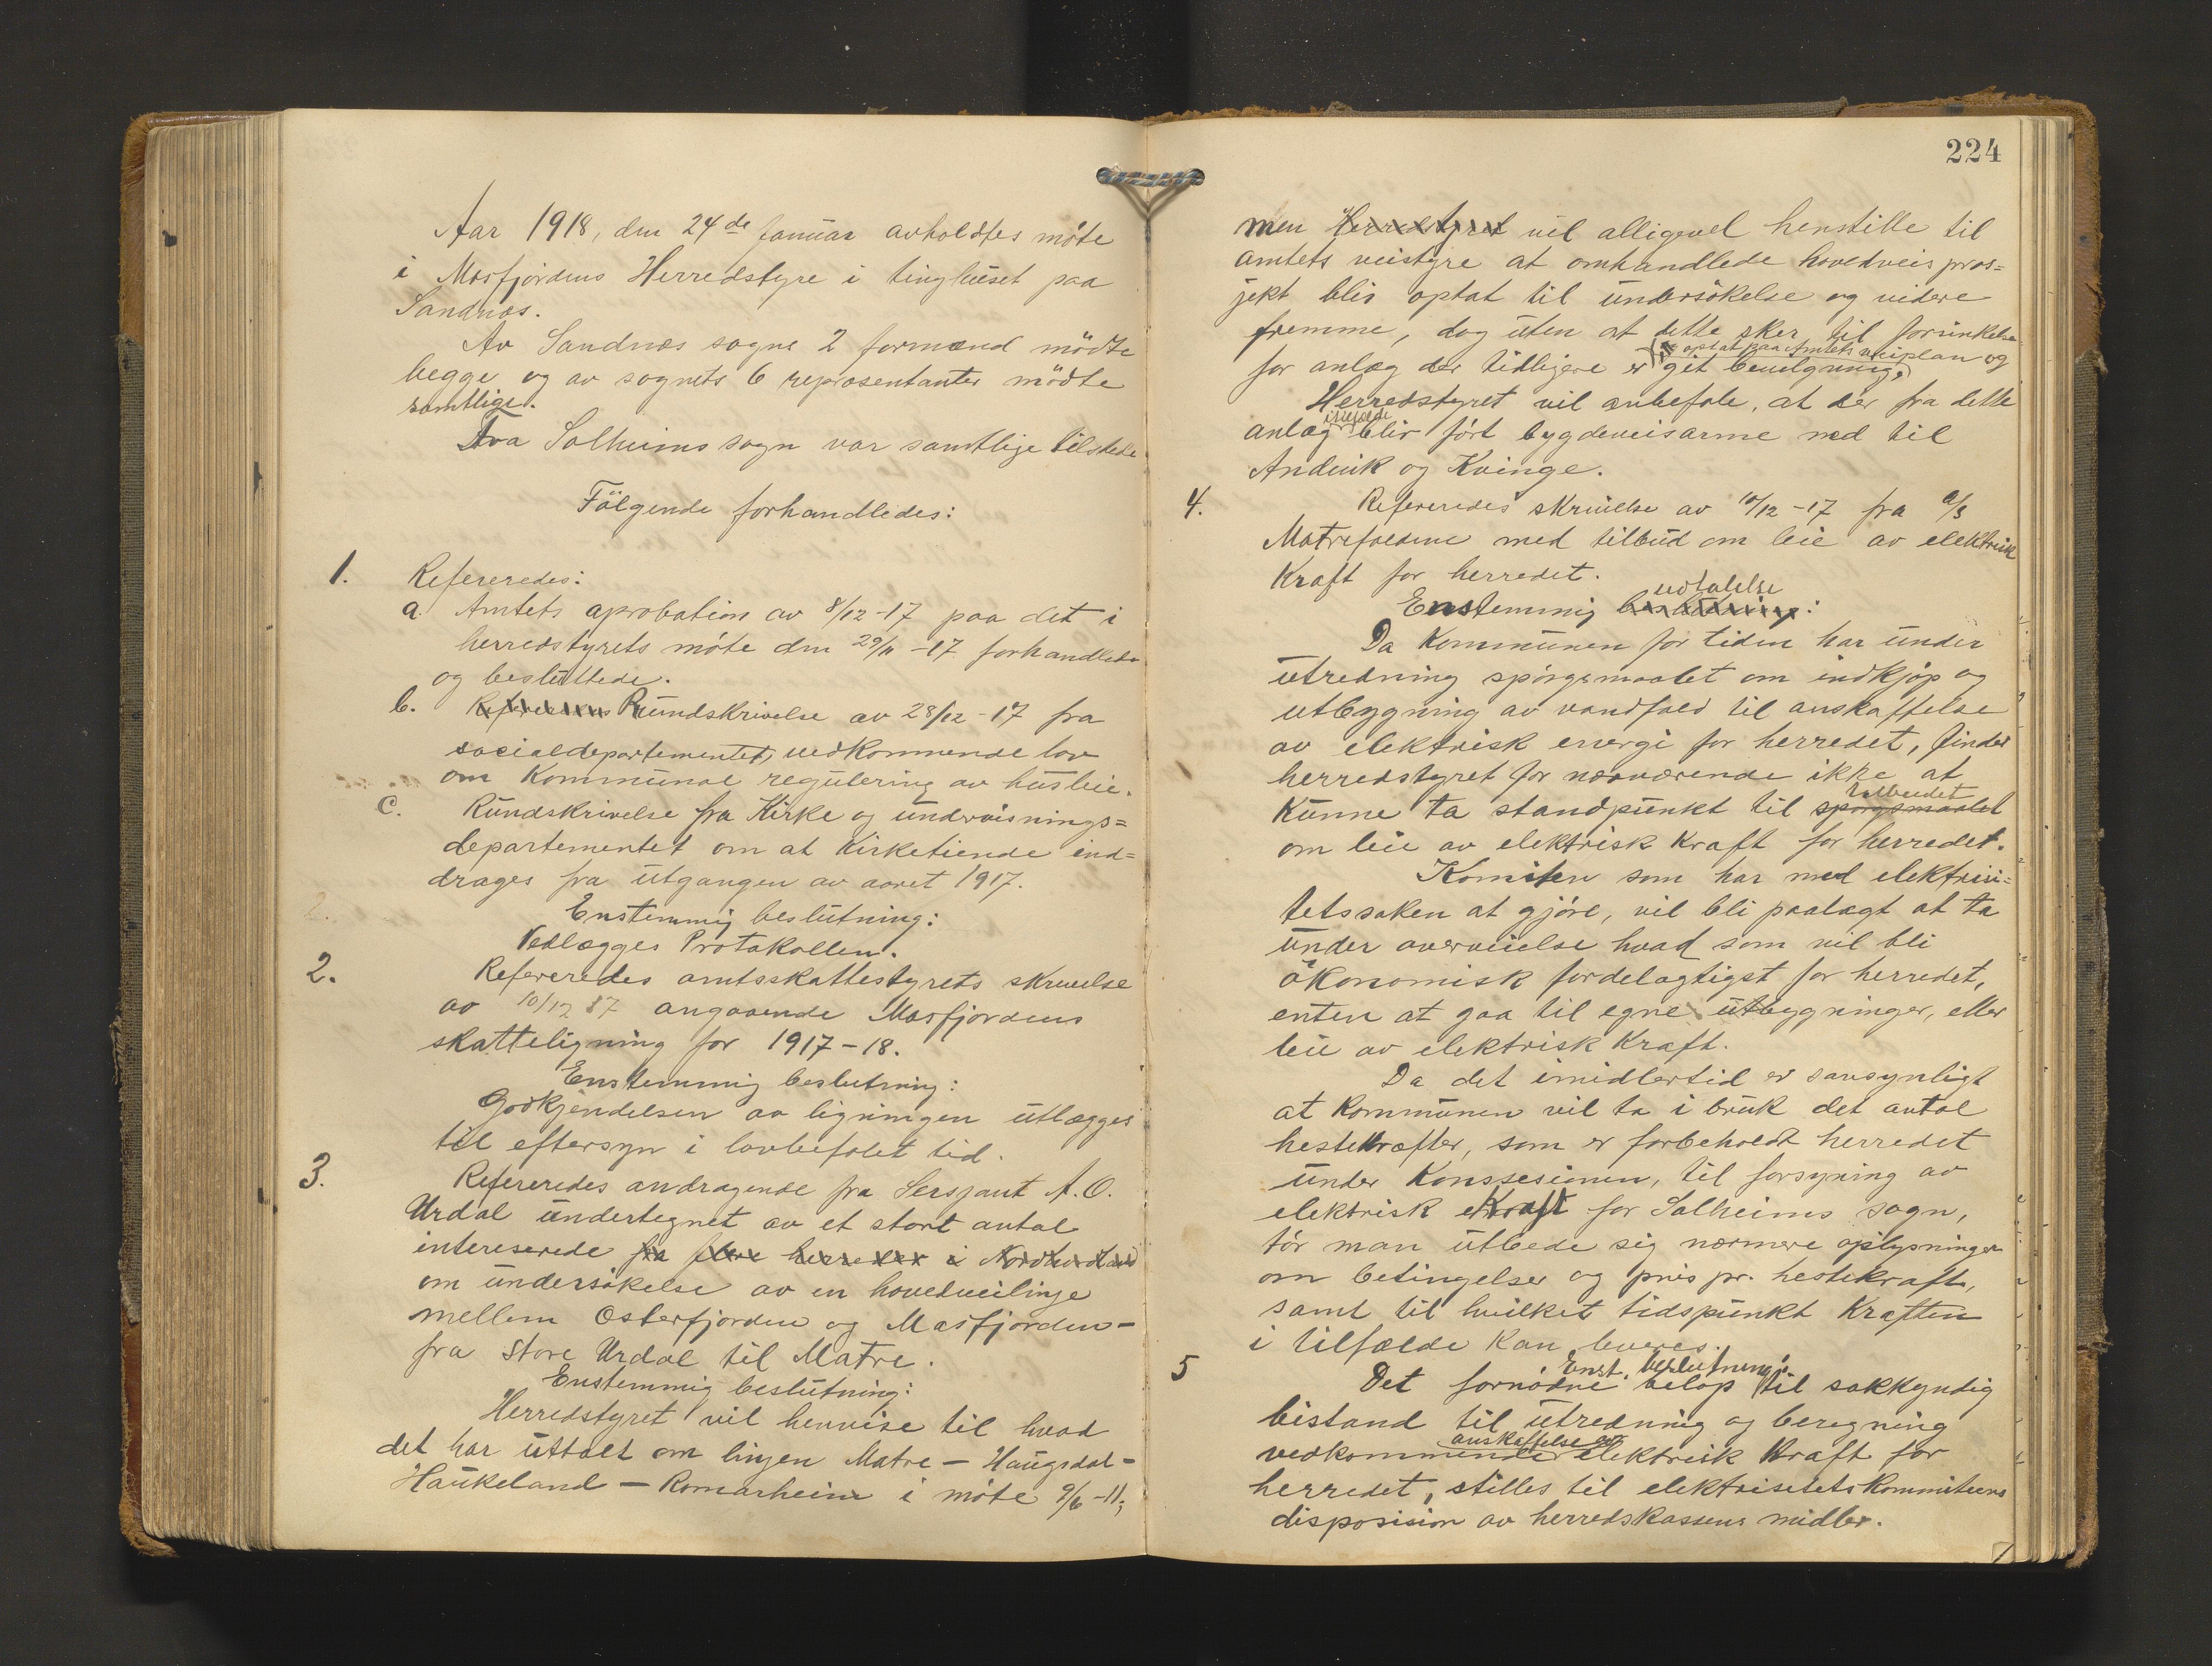 Aar 1918, den 24de Januar avholdtes møte
i Masfjordens Herredstyre i tinghuset paa
Sandnæs.
Av Sandnæs sogns 2 formænd mødte
begge og av sognets 6 repræsentanter mødte
samtlige.
Fra Solheims sogn var samtlige tilstede
Følgende forhandledes:
1. Refereredes:
a. Amtets aprobation av 8/12-17 paa det i
herredstyrets møte den 29/11-17 forhandlede
og besluttede.
b. Refereredes Rundskrivelse av 28/12-17 fra
socialdepartementet, vedkommende lov
om kommunal regulering av husleie.
c. Rundskrivelse fra Kirke og undervisnings=
departementet om at kirketiende ind=
drages fra utgangen av aaret 1917.
Enstemmig beslutning:
Vedlægges Protokollen.
2. Refereredes amtsskattestyrets skrivelse
av 10/12 17 angaaende Masfjordens
skatteligning for 1917-18.
Enstemmig beslutning:
Godkjendelsen av ligningen utlægges
til eftersyn i lovbefalet tid.
3. Refereredes andragende fra Sersjant A. O.
Urdal undertegnet av et stort antal
intereserede fra flere herreder i Nordhordland
om undersøkelse av en hovedveilinje
mellem Osterfjorden og Masfjorden-
fra Store Urdal til Matre.
Enstemmig beslutning:
Herredstyret vil henvise til hvad
det har uttalt om linjen Matre - Haugsdal-
Haukeland - Romarheim i møte 9/6-11;
224
men Herredstyret vil alligevel henstille til
amtets veistyre at omhandlede hovedveis pros=
jekt blir optat til undersøkelse og videre
fremme, dog uten at dette sker til forsinkelse
optat paa Amtets veiplan og
for anlæg der tidligere er git bevilgning,
Herredstyret vil anbefale, at der fra dette
isefælde
anlæg blir ført bygdeveisarme ned til
Andvik og Kvinge.
4. Refereredes skrivelse av 10/12-17 fra a/s
Matrefaldene med tilbud om leie av elektrisk
Kraft for herredet.
udtalelse
Enstemmig beslutning:
Da Kommunen for tiden har under
utredning spørgsmaalet om indkjøp og
utbygning av vandfald til anskaffelse
av elektrisk energi for herredet, finder
herredstyret for nærværende ikke at
tilbudet
kunne ta standpunkt til spørgsmaalet
om leie av elektrisk kraft for herredet.
Komiteen som har med elektrisi=
tetssaken at gjøre, vil bli paalagt at ta
under overveielse hvad som vil bli
økonomisk fordelagtigst for herredet,
enten at gaa til egne utbygninger, eller
leie av elektrisk Kraft.
Da det imidlertid er sansynligt
at kommunen vil ta i bruk det antal
hestekræfter, som er forbeholdt herredet
under Konssesionen, til forsyning av
elektrisk Kraft for Solheims sogn,
tør man utbede sig nærmere oplysninger
om betingelser og pris pr. hestekraft,
samt til hvilket tidspunkt Kraften
i tilfælde kan leveres.
Enst. beslutning:
5 Det fornødne beløp til sakkyndig
bistand til utredning og beregning
anskaffelse av
vedkommende elektrisk Kraft for
herredet, stilles til elektrisitetskommiteens
disposision av herredskassens midler.